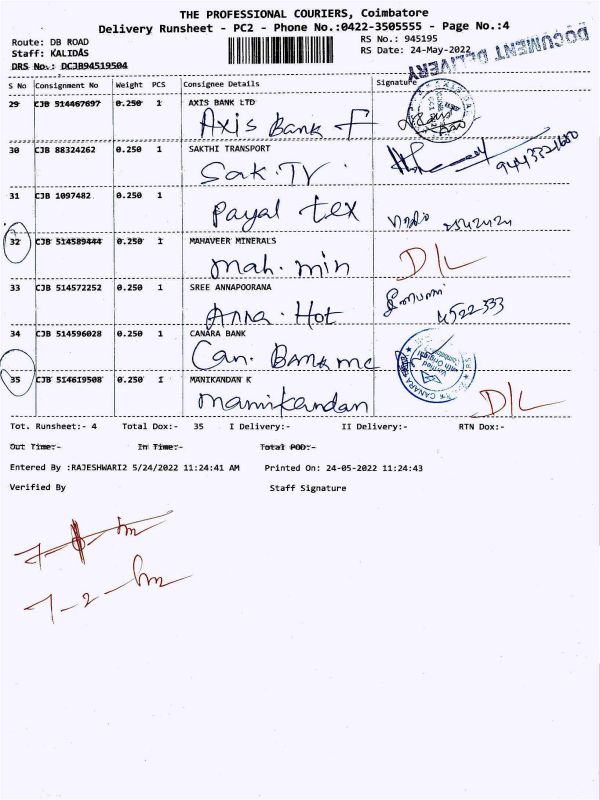 THE PROFESSIONAL COURIERS, Coimbatore
Delivery Runsheet - PC2 - Phone No.:0422-3505555 - Page No.:4
Route: DB ROAD
Staff: KALIDAS
DRS No.: DCJB94519504
RS No.: 945195
RS Date: 24-May-2022
DOCUMENT DELIVERY
S No Consignment No Weight PCS Consignee Details Signature
29 CJB 514467697 0.250 1 AXIS BANK LTD
Axis Bank F
30 CJB 88324262 0.250 1 SAKTHI TRANSPORT
Sak. Tr
31 CJB 1097482 0.250 1
Payal tex
32 CJB 514589444 0.250 1 MAHAVEER MINERALS
mah. min D/L
33 CJB 514572252 0.250 1 SREE ANNAPOORANA
Anna. Hot 4522333
34 CJB 514596028 0.250 1 CANARA BANK
Can. Bank mc
35 CJB 514619508 0.250 1 MANIKANDAN K
manikandan D/L
Tot. Runsheet:- 4 Total Dox:- 35 I Delivery:- II Delivery:- RTN Dox:-
Out Time:- In Time:- Total POD:-
Entered By :RAJESHWARI2 5/24/2022 11:24:41 AM Printed On: 24-05-2022 11:24:43
Verified By Staff Signature